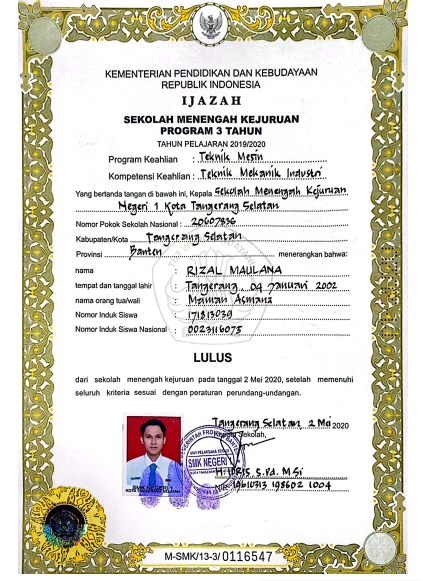 KEMENTERIAN PENDIDIKAN DAN KEBUDAYAAN
REPUBLIK INDONESIA
IJAZAH
SEKOLAH MENENGAH KEJURUAN
PROGRAM 3 TAHUN
TAHUN PELAJARAN 2019/2020
Program Keahlian : Teknik Mesin
Kompetensi Keahlian : Teknik Mekanik Industri
Yang bertanda tangan di bawah ini, Kepala Sekolah Menengah Kejuruan
Negeri 1 Kota Tangerang Selatan
Nomor Pokok Sekolah Nasional : 20607836
Kabupaten/Kota Tangerang Selatan
Provinsi Banten menerangkan bahwa:
nama : RIZAL MAULANA
tempat dan tanggal lahir : Tangerang, 04 Januari 2002
nama orang tua/wali : Maman Asmana
Nomor Induk Siswa : 171813039
Nomor Induk Siswa Nasional : 0023116075
LULUS
dari sekolah menengah kejuruan pada tanggal 2 Mei 2020, setelah memenuhi
seluruh kriteria sesuai dengan peraturan perundang-undangan.
Tangerang Selatan, 2 Mei 2020
Kepala Sekolah,
SMK NEGERI 1
H. IDRIS S.Pd. M.Si
NIP. 19610313 198602 1004
SMK NEGERI 1
KOTA TANGERANG SELATAN
M-SMK/13-3/0116547